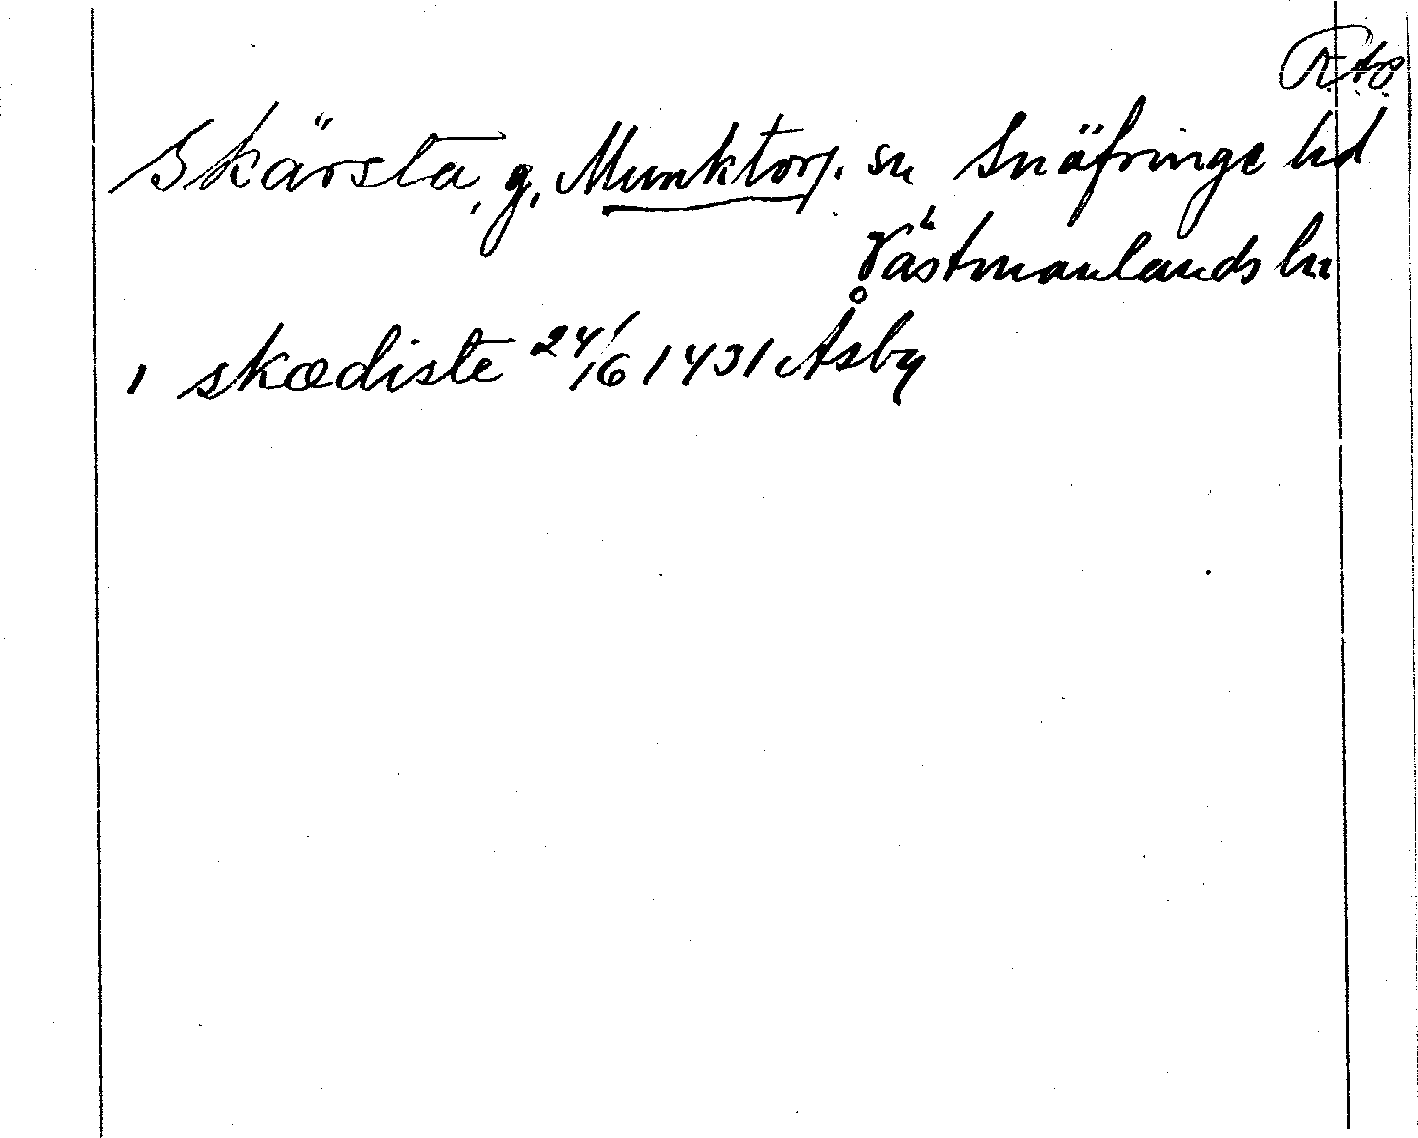 R.A.P.
Skärsta, g, Munktorp. sn Snäfringe hd
Västmanlands ln
, skædiste 24/6 1431 Åsby